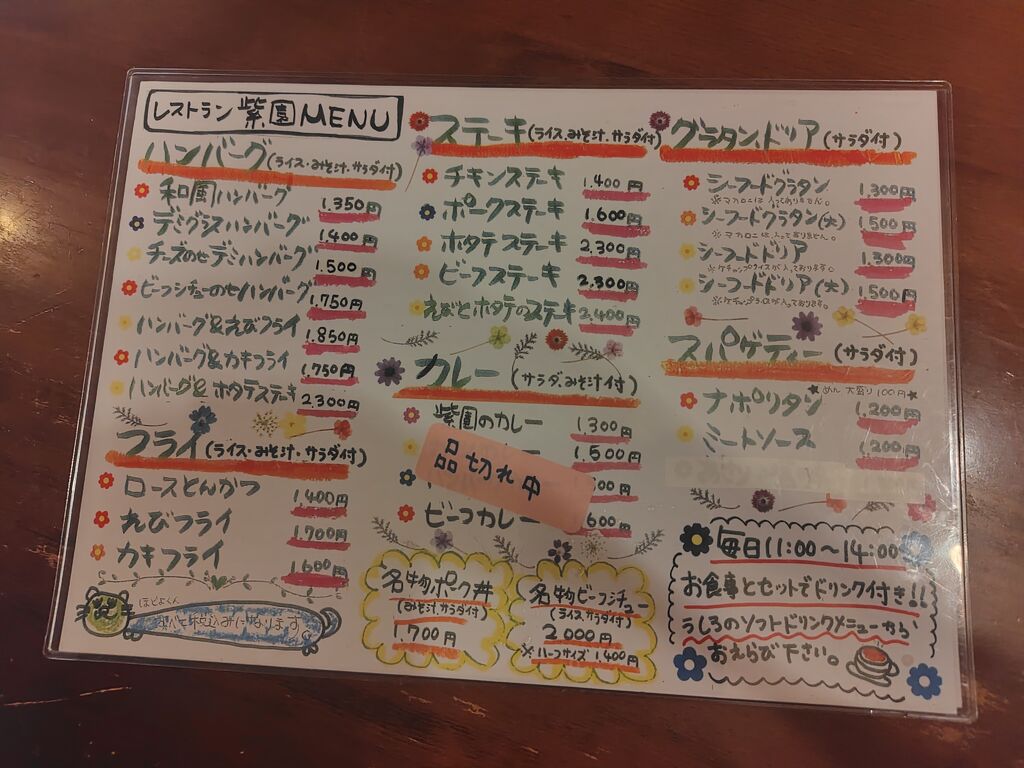 レストラン 紫園 MENU
ハンバーグ(ライス・みそ汁・サラダ付)
和風ハンバーグ 1.350円
デミグラスハンバーグ 1.400円
チーズのせデミハンバーグ 1.500円
ビーフシチューのせハンバーグ 1.750円
ハンバーグ&えびフライ 1.850円
ハンバーグ&カキフライ 1.750円
ハンバーグ&ホタテステーキ 2.300円
フライ(ライス・みそ汁・サラダ付)
ロースとんかつ 1.400円
えびフライ 1.700円
カキフライ 1.600円
ほどよくん
ステーキ(ライス.みそ汁.サラダ付)
チキンステーキ 1.400円
ポークステーキ 1.600円
ホタテステーキ 2.300円
ビーフステーキ 2.300円
えびとホタテのステーキ 2.400円
カレー(サラダ.みそ汁付)
紫園のカレー 1.300円
1.500円
品切れ中
500円
ビーフカレー 600円
名物ポーク丼
(みそ汁.サラダ付)
1.700円
名物ビーフシチュー
(ライス.サラダ付)
2.000円
※ハーフサイズ 1.400円
グラタン.ドリア(サラダ付)
シーフードグラタン 1.300円
※マカロニは入っておりません。
シーフードグラタン(大) 1.500円
※マカロニは入っておりません。
シーフードドリア 1.300円
※ケチャップライスが入っております。
シーフードドリア(大) 1.500円
※ケチャップライスが入っております。
スパゲティー(サラダ付)
★めん 大盛り100円★
ナポリタン 1.200円
ミートソース 1.200円
毎日11:00〜14:00
お食事とセットでドリンク付き!!
うしろのソフトドリンクメニューから
おえらび下さい。